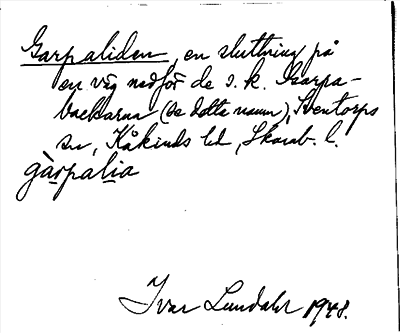 Garpaliden, en sluttning på
en väg nedför de s.k. Garpa-
backarna (se detta namn), Sventorps
sn, Kåkinds hd, Skarab. l.
gàrpalia
Ivar Lundahl 1948.